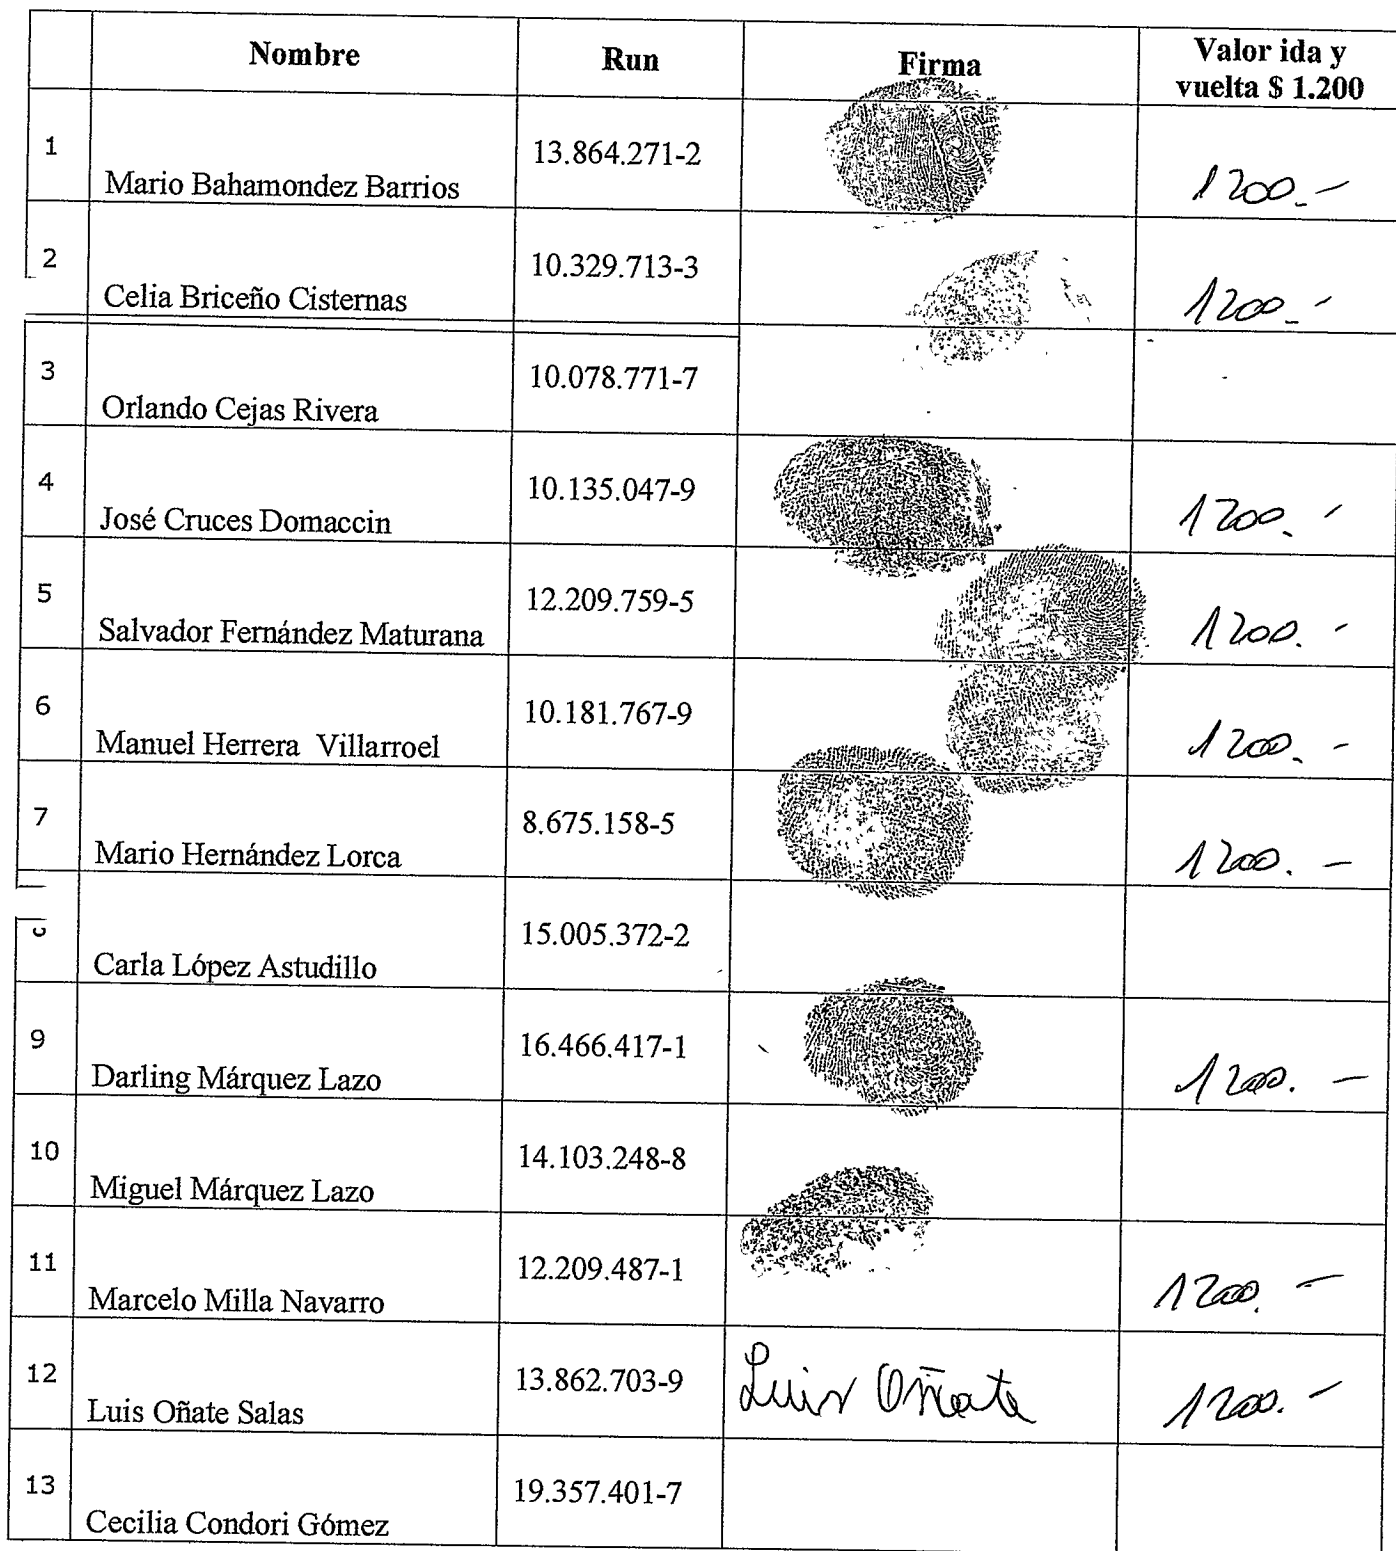 Nombre Run Firma Valor ida y
vuelta $ 1.200
1 Mario Bahamondez Barrios 13.864.271-2 1200.-
2 Celia Briceño Cisternas 10.329.713-3 1200.-
3 Orlando Cejas Rivera 10.078.771-7
4 José Cruces Domaccin 10.135.047-9 1200.-
5 Salvador Fernández Maturana 12.209.759-5 1200.-
6 Manuel Herrera Villarroel 10.181.767-9 1200.-
7 Mario Hernández Lorca 8.675.158-5 1200.-
Carla López Astudillo 15.005.372-2
9 Darling Márquez Lazo 16.466.417-1 1200.-
10 Miguel Márquez Lazo 14.103.248-8
11 Marcelo Milla Navarro 12.209.487-1 1200.-
12 Luis Oñate Salas 13.862.703-9 Luis Oñate 1200.-
13 Cecilia Condori Gómez 19.357.401-7